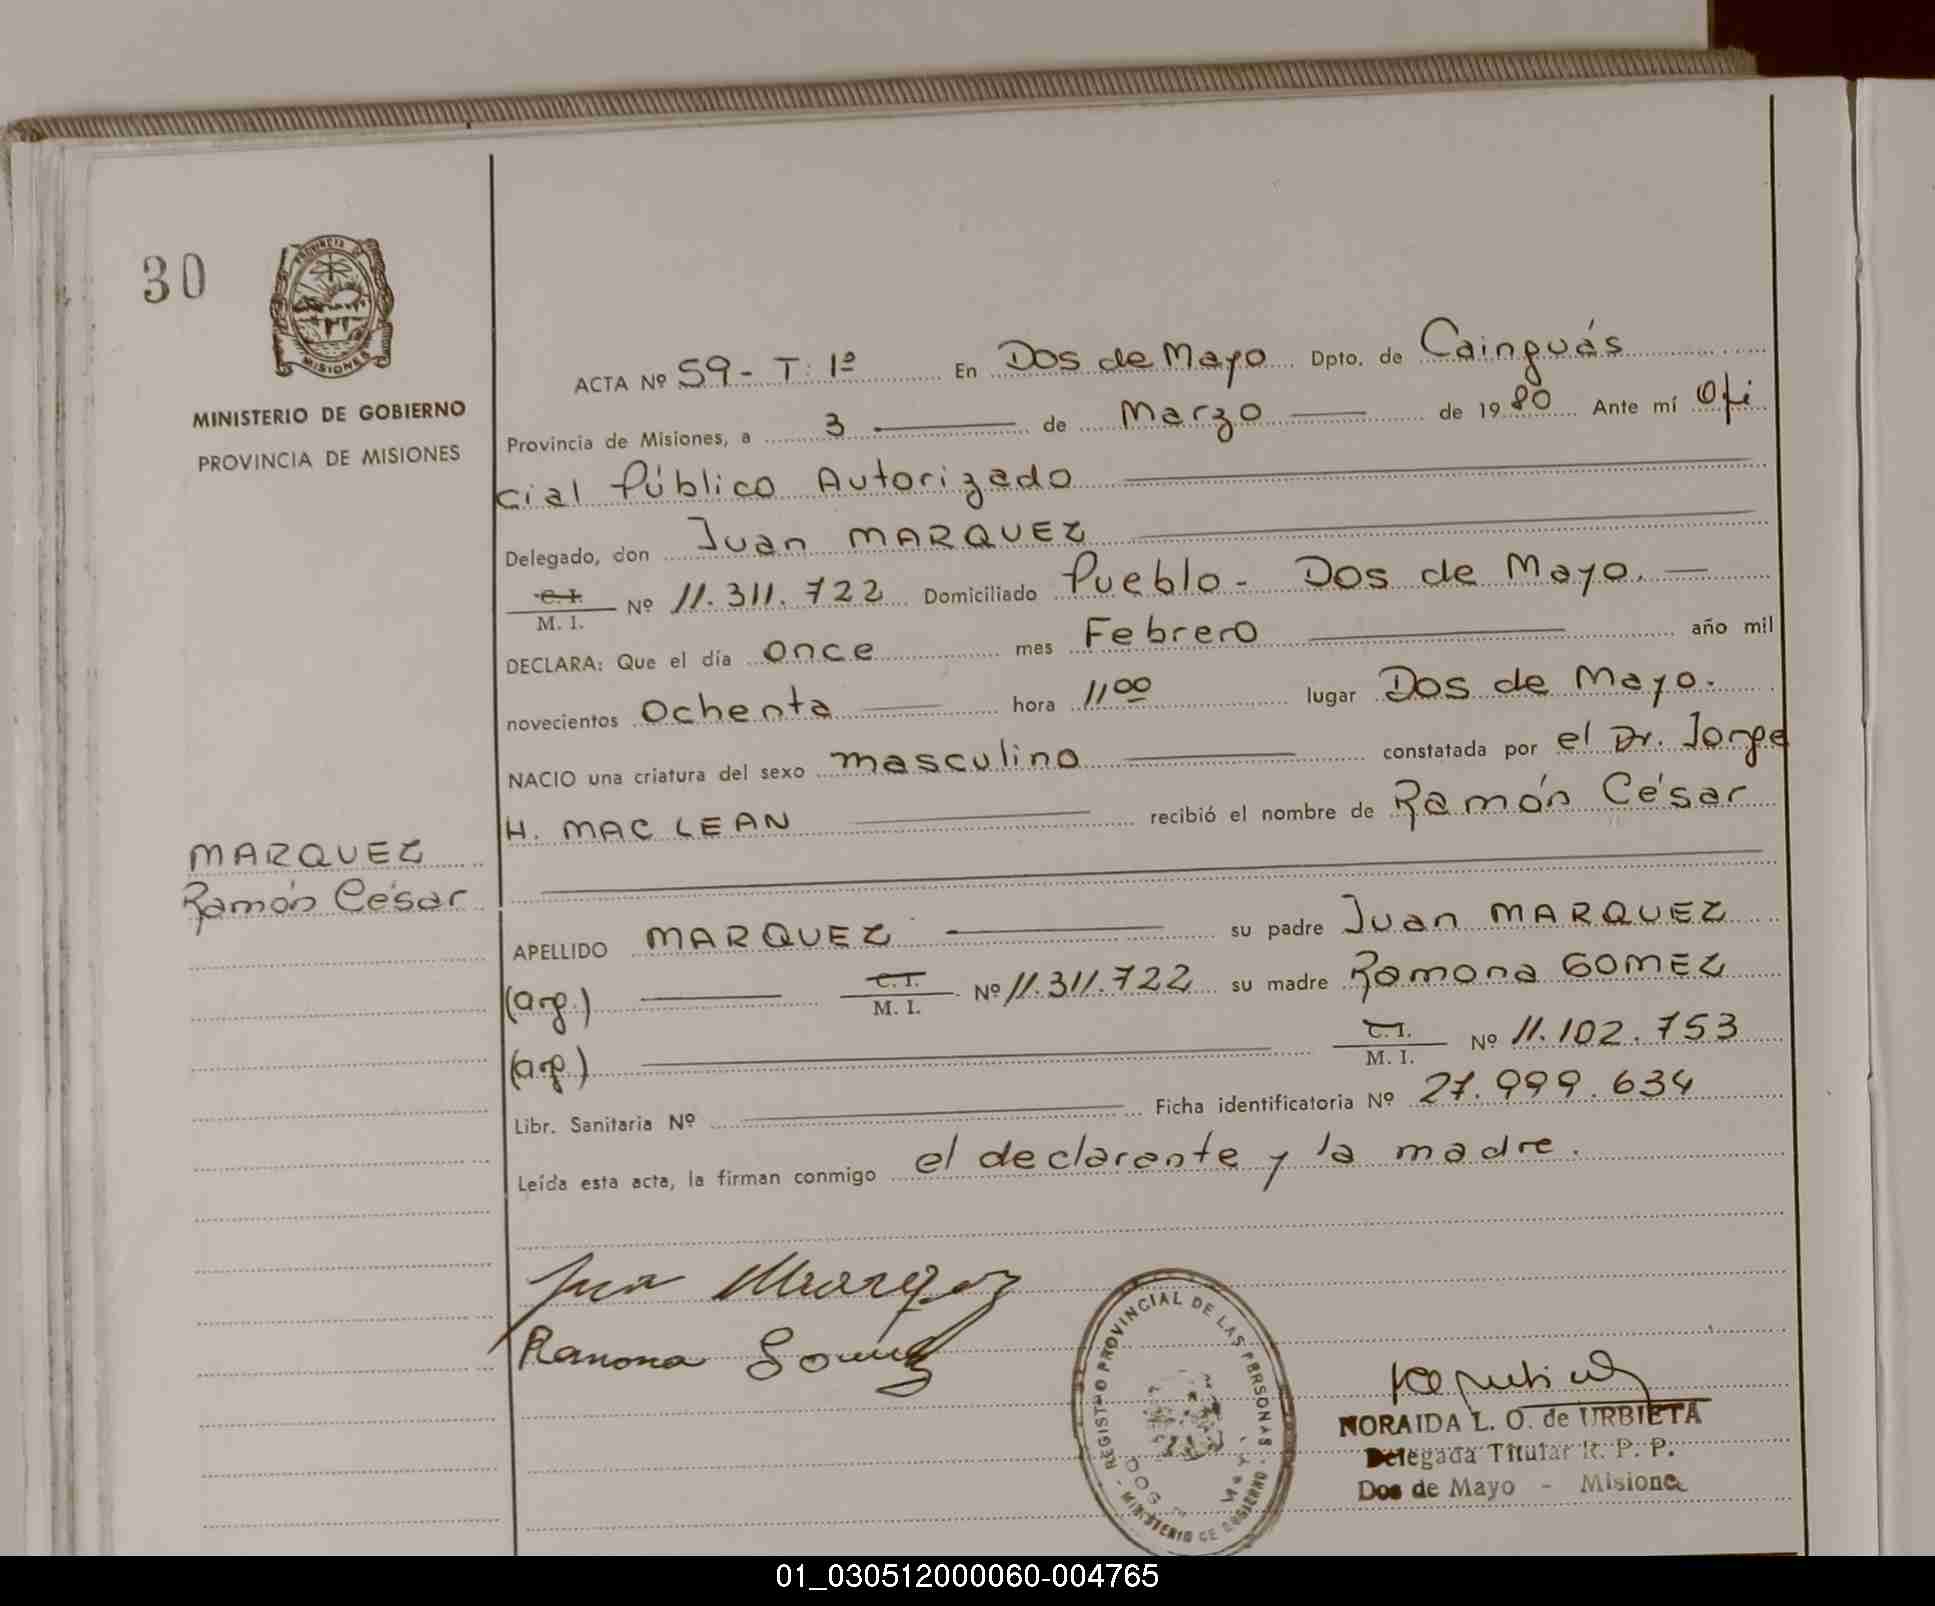 30
PROVINCIA DE
MISIONES
MINISTERIO DE GOBIERNO
PROVINCIA DE MISIONES
ACTA Nº 59 - T: 1º En Dos de Mayo Dpto. de Cainguás
Provincia de Misiones, a 3 de Marzo de 1980 Ante mí Ofi
cial Público Autorizado
Delegado, don Juan MARQUEZ
C. I.
M. I. Nº 11.311.722 Domiciliado Pueblo - Dos de Mayo.
DECLARA: Que el día once mes Febrero año mil
novecientos Ochenta hora 11 00 lugar Dos de Mayo.
NACIO una criatura del sexo masculino constatada por el Dr. Jorge
H. MAC LEAN recibió el nombre de Ramón César
MARQUEZ
Ramón César
APELLIDO MARQUEZ su padre Juan MARQUEZ
(arg.) C. I.
M. I. Nº 11.311.722 su madre Ramona GOMEZ
(arg.) C. I.
M. I. Nº 11.102.753
Libr. Sanitaria Nº Ficha identificatoria Nº 27.999.634
Leída esta acta, la firman conmigo el declarante y la madre.
Juan Marquez
Ramona Gomez
REGISTRO PROVINCIAL DE LAS PERSONAS - MINISTERIO DE GOBIERNO -
DOS DE MAYO
NORAIDA L. O. de URBIETA
Delegada Titular R. P. P.
Dos de Mayo - Misiones
01_030512000060-004765